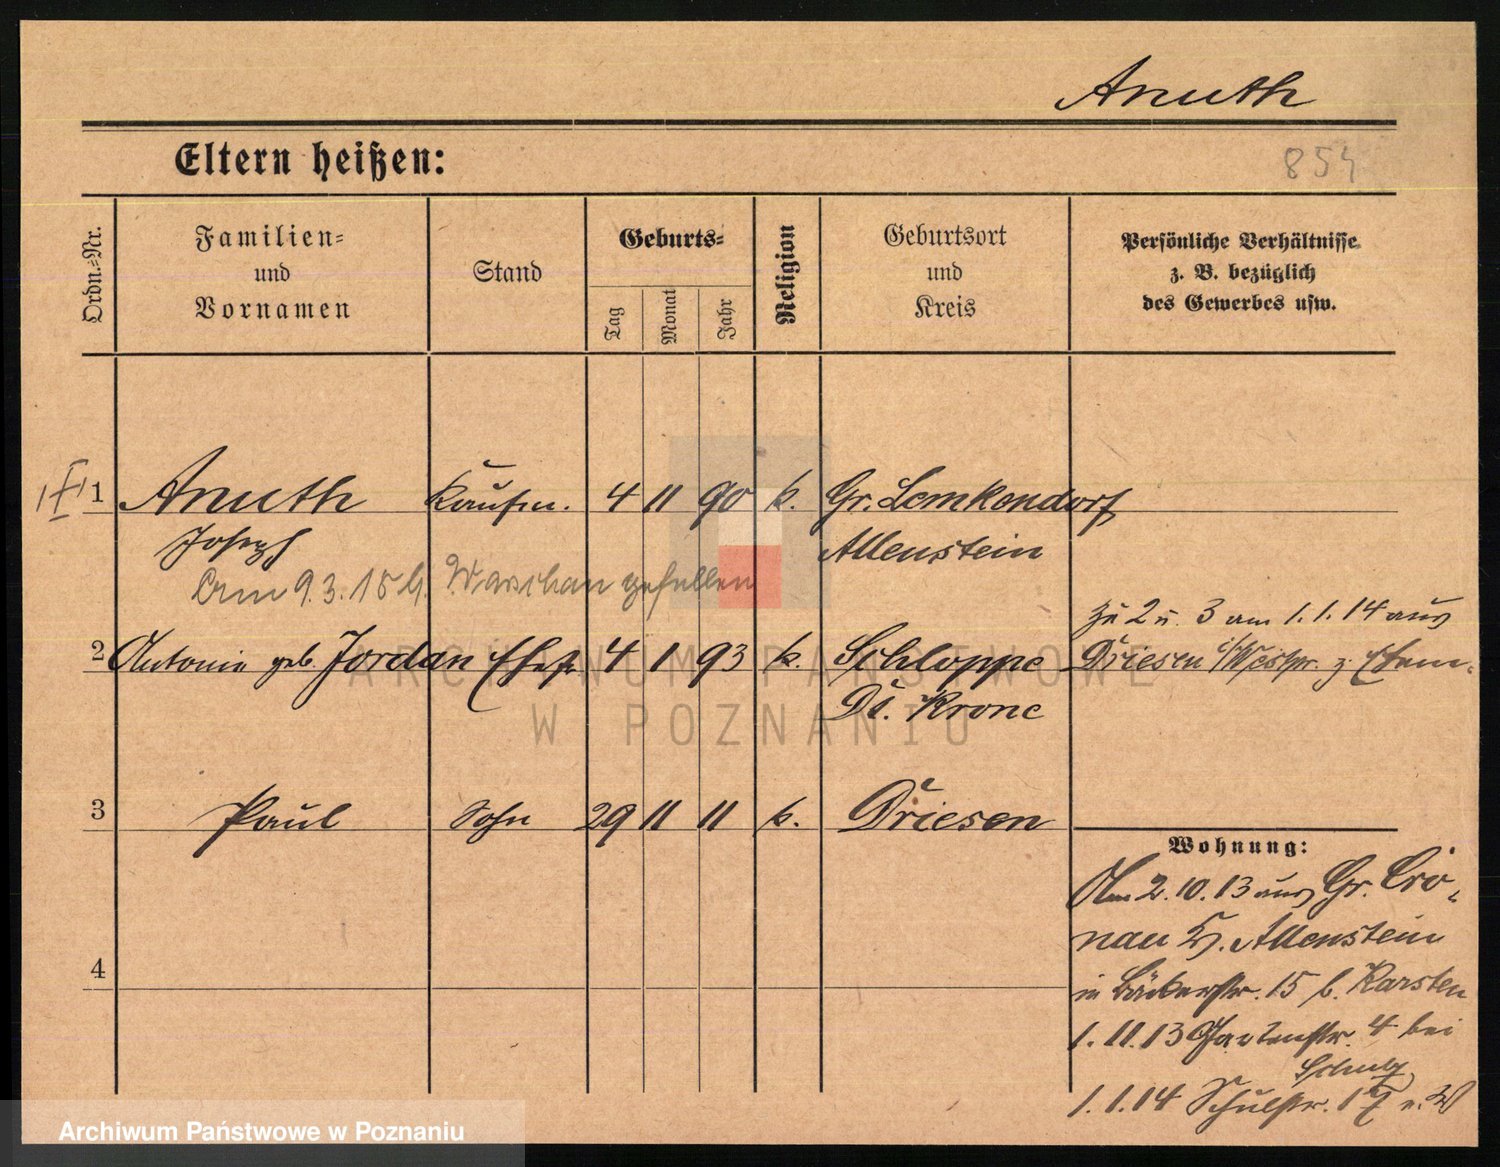 Anuth
Eltern heißen:
854
Ordn.-Nr.
Familien-
und
Vornamen
Stand
Geburts-
Tag
Monat
Jahr
Religion
Geburtsort
und
Kreis
Persönliche Verhältnisse
z. B. bezüglich
des Gewerbes usw.
1 Anuth Kaufm. 4 11 90 k. Gr. Lemkendorf
Joseph Allenstein
Am 9.3.15 b. Warschau gefallen
zu 2 u. 3 am 1.1.14 aus
2 Antonie geb. Jordan Ehefr. 4 1 93 k. Schloppe Driesen i/Westpr. z. Ehem.
Dt. Krone
3 Paul Sohn 29 11 11 k. Driesen
Wohnung:
Am 2.10.13 aus Gr. Cro-
nau Kr. Allenstein
4
in Bäckerstr. 15 b. Karsten
1.11.13 Gartenstr. 4 bei
Schulz
1.1.14 Schulstr. 17
ARCHIWUM PAŃSTWOWE
W POZNANIU
Archiwum Państwowe w Poznaniu